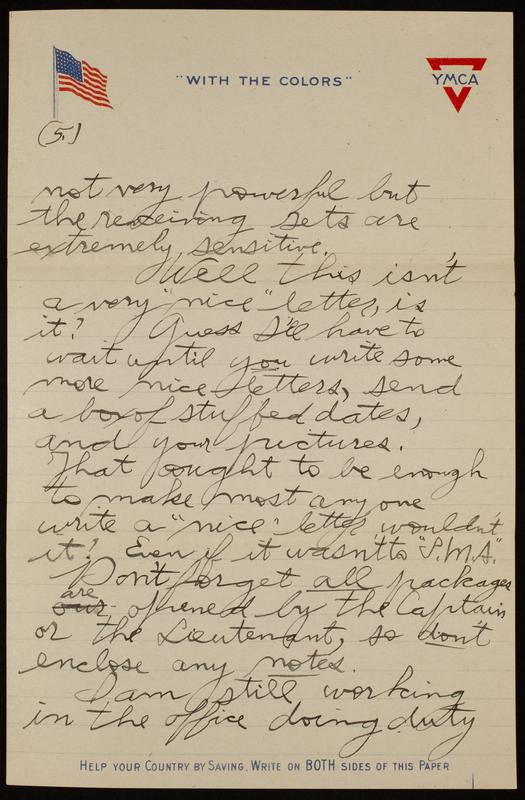 "WITH THE COLORS"
YMCA
(5.)
not very powerful but
the receiving sets are
extremely sensitive.
Well this isn't
a very "nice" letter, is
it? Guess I'll have to
wait until you write some
more nice letters, send
a box of stuffed dates,
and your pictures.
That ought to be enough
to make most any one
write a "nice" letter, wouldn't
it? Even if it wasn't to "S.M.A."
Don't forget all packages
are
our opened by the Captain
or the Lieutenant, so don't
enclose any notes.
I am still working
in the office doing duty
HELP YOUR COUNTRY BY SAVING. WRITE ON BOTH SIDES OF THIS PAPER